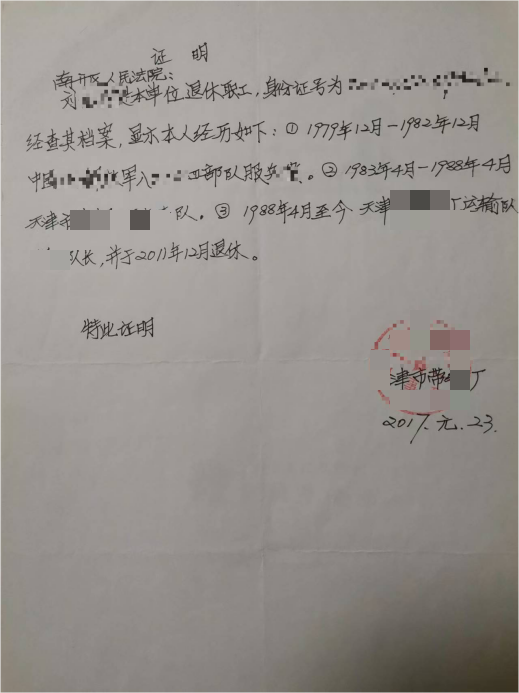 证 明
南开区人民法院：
刘 是本单位退休职工，身份证号为
经查其档案，显示本人经历如下：① 1979年12月－1982年12月
中国 部队服兵役。② 1983年4月－1988年4月
天津市 队。③ 1988年4月至今 天津 厂运输队
队长，并于2011年12月退休。
特此证明
津市带 厂
2017.元.23.